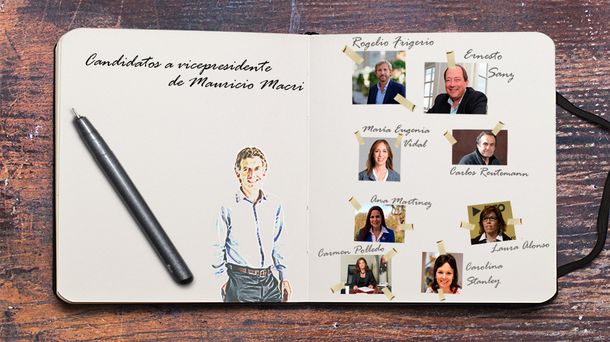 Candidatos a vicepresidente
de Mauricio Macri
Rogelio Frigerio
Ernesto
Sanz
María Eugenia
Vidal
Carlos Reutemann
Ana Martinez
Laura Alonso
Carmen Polledo
Carolina
Stanley